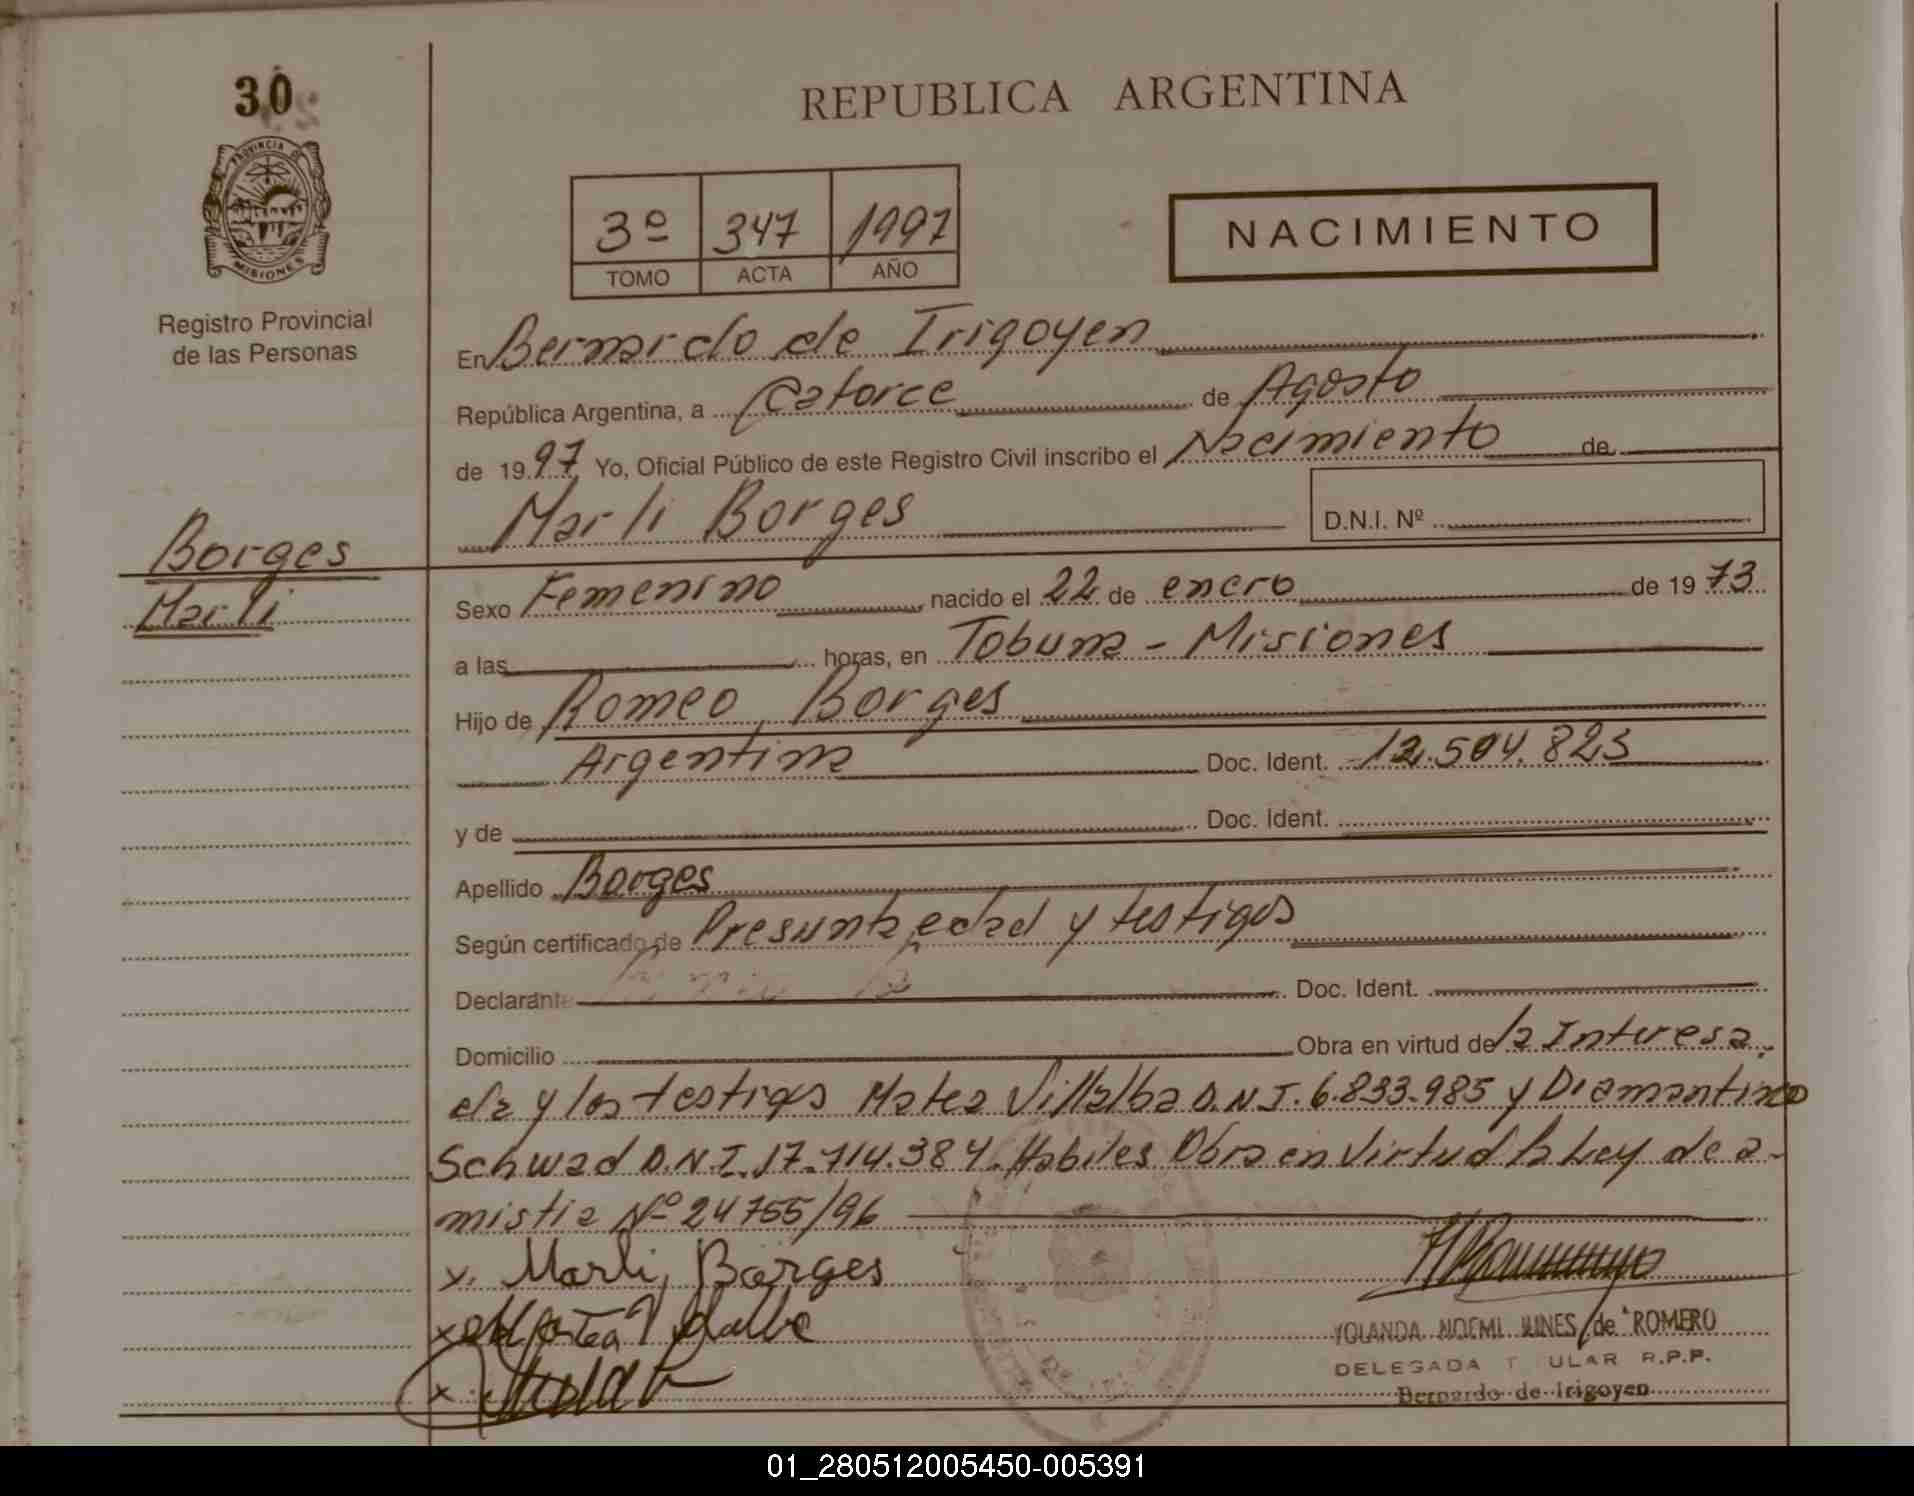 30
REPUBLICA ARGENTINA
PROVINCIA DE
MISIONES
Registro Provincial
de las Personas
3º 347 1997
TOMO ACTA AÑO
NACIMIENTO
En Bernardo de Irigoyen
República Argentina, a Catorce de Agosto
de 1997 Yo, Oficial Público de este Registro Civil inscribo el Nacimiento de
Marli Borges D.N.I. Nº
Borges
Marli
Sexo Femenino nacido el 22 de enero de 1973
a las horas, en Tobuna - Misiones
Hijo de Romeo Borges
Argentina Doc. Ident. 12.504.823
y de Doc. Ident.
Apellido Borges
Según certificado de Presunta edad y testigos
Declarante Doc. Ident.
Domicilio Obra en virtud de la Interesa
da y los testigos Matea Villalba D.N.I. 6.833.985 y Diamantino
Schwad D.N.I. 17.714.384. Habiles Obra en virtud la Ley de a-
mistia Nº 24755/96
x. Marli Borges
x
x
YOLANDA NOEMI NUNES de ROMERO
DELEGADA T ULAR R.P.P.
Bernardo de Irigoyen
01_280512005450-005391